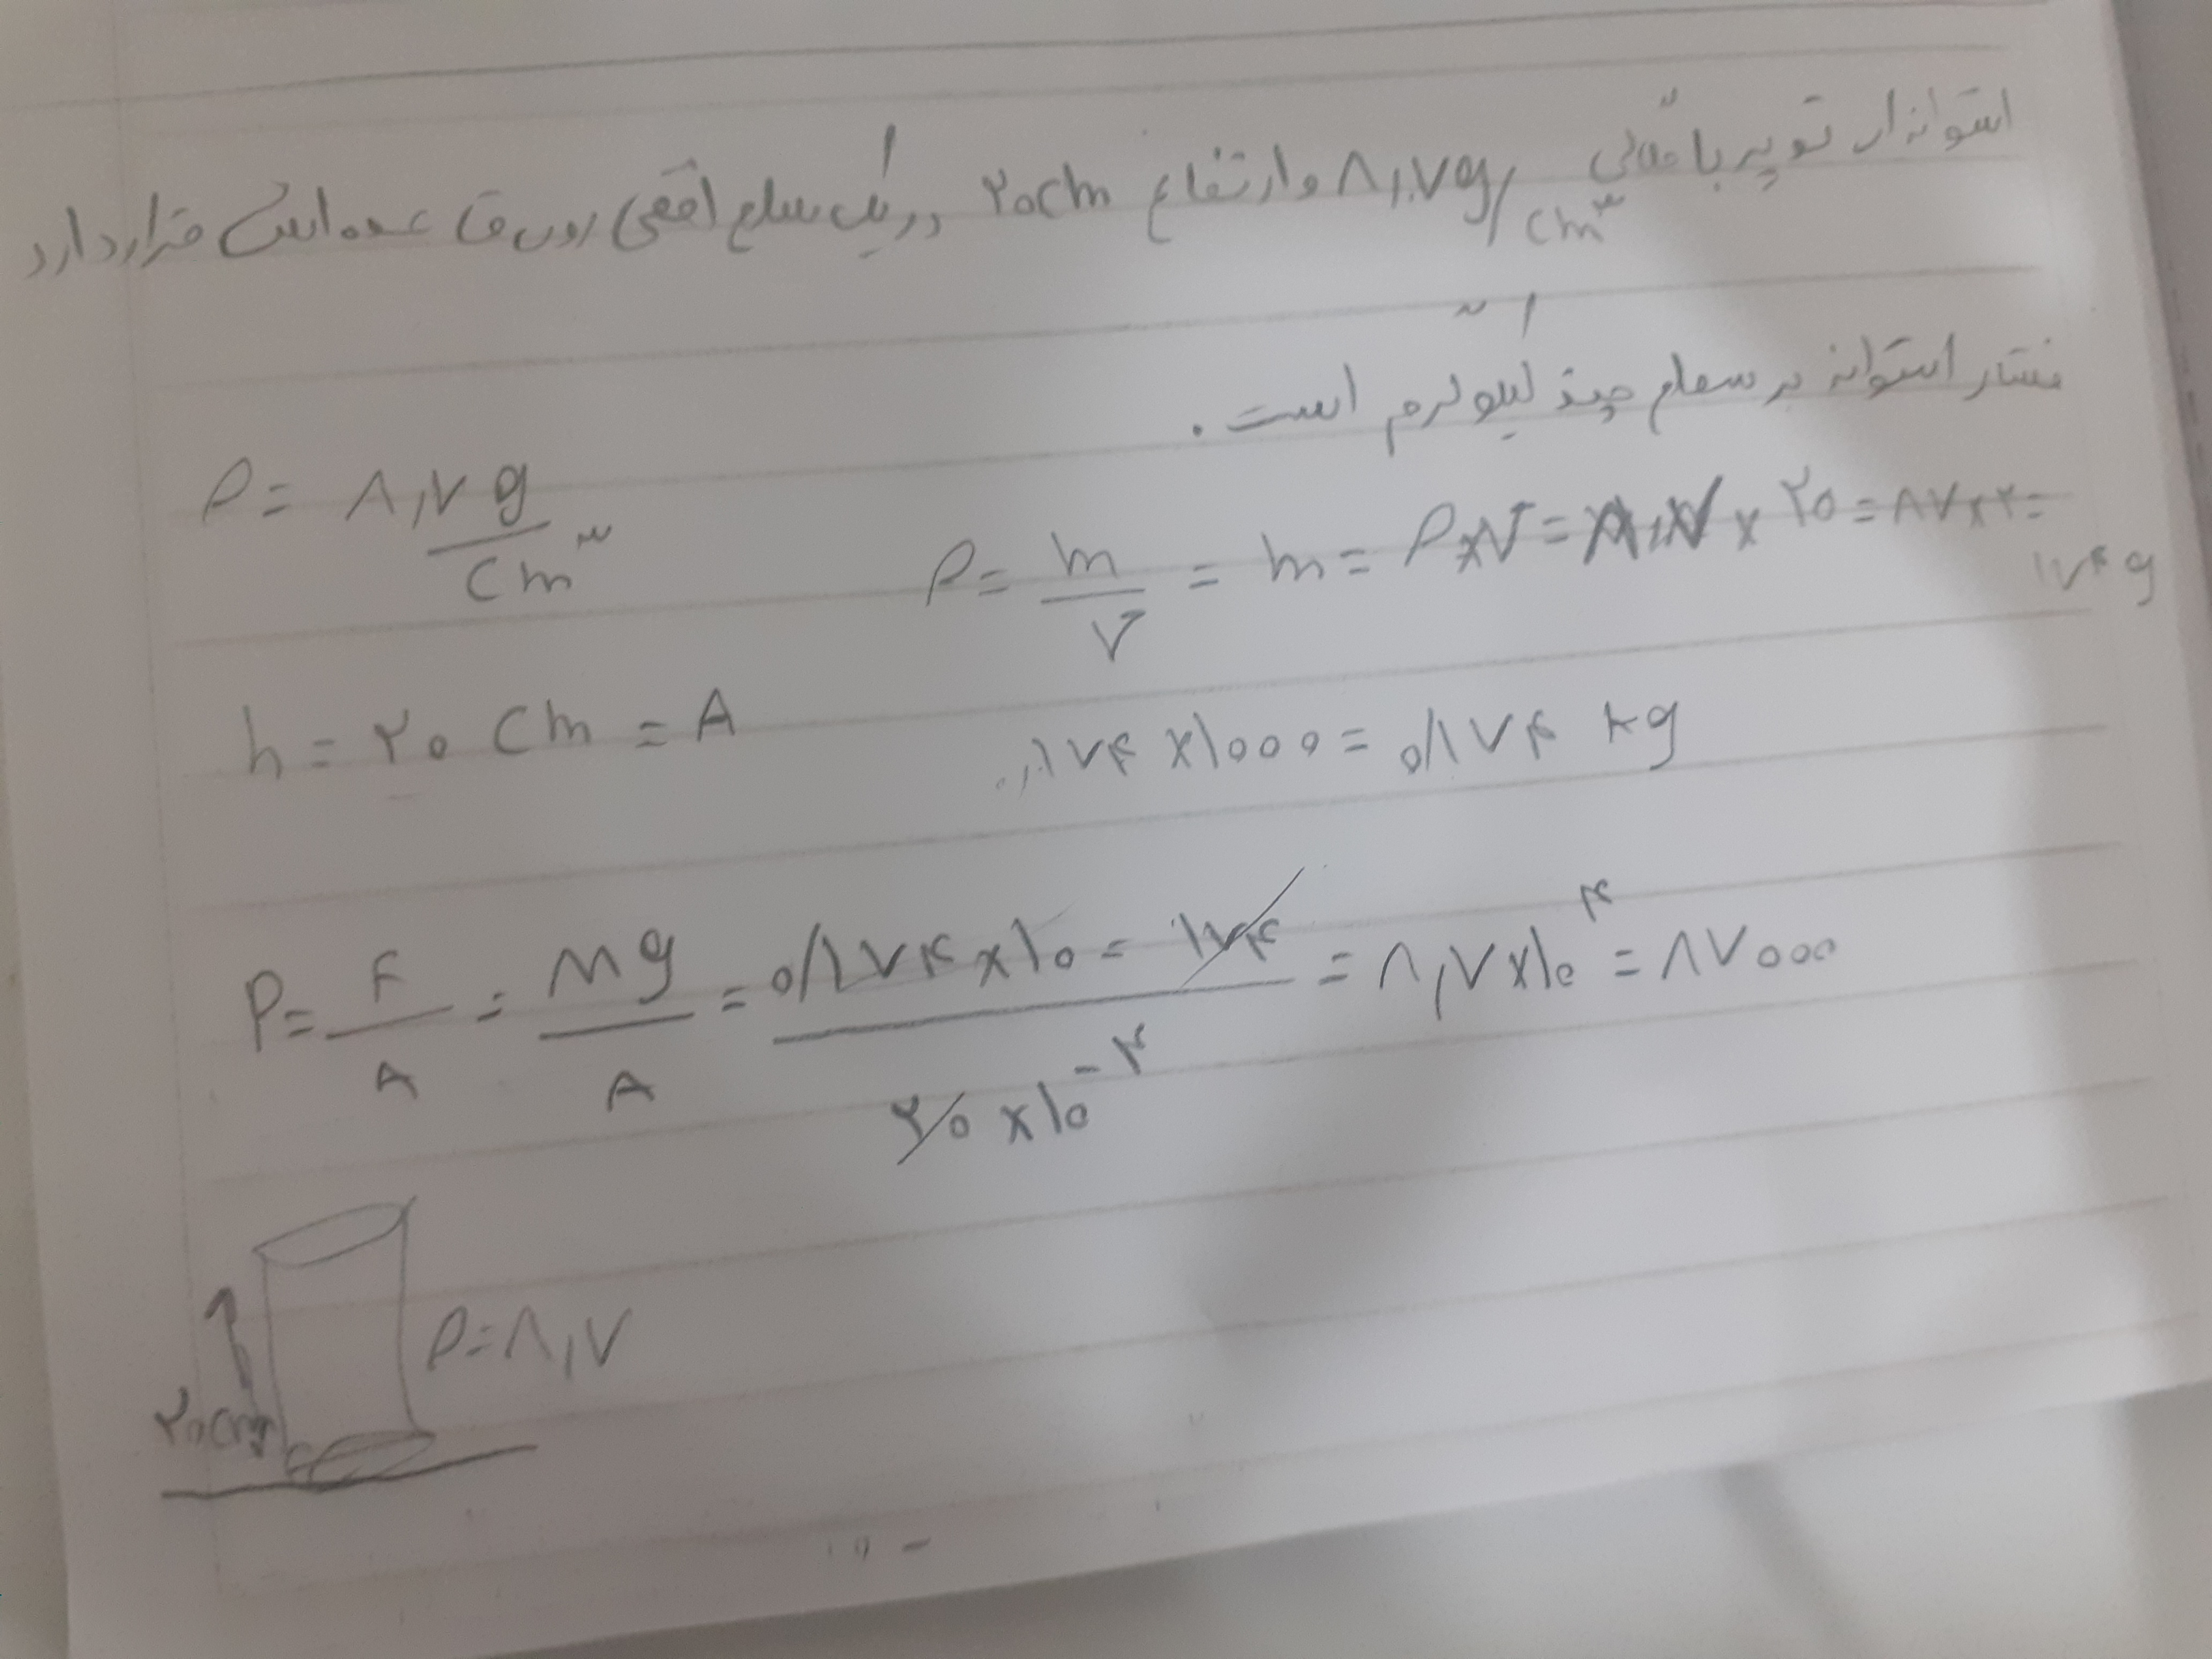 استوانه‌ای توپر با چگالی ۸٫۷g/cm۳ و ارتفاع ۲۰cm در یک سطح افقی روی قاعده‌اش قرار دارد
فشار استوانه بر سطح چند کیلوگرم است.
ρ = ۸٫۷ g/cm۳
ρ = m/V = m = ρ×V = ۸٫۷ × ۲۰ = ۸۷×۲ = ۱۷۴ g
h = ۲۰ cm = A
۱۷۴ × ۱۰۰۰ = ۰/۱۷۴ kg
P = F/A = mg/A = ۰/۱۷۴ × ۱۰ = ۱۷۴ / ۲۰ × ۱۰^-۴ = ۸٫۷ × ۱۰^۴ = ۸۷۰۰۰
ρ = ۸٫۷
۲۰cm